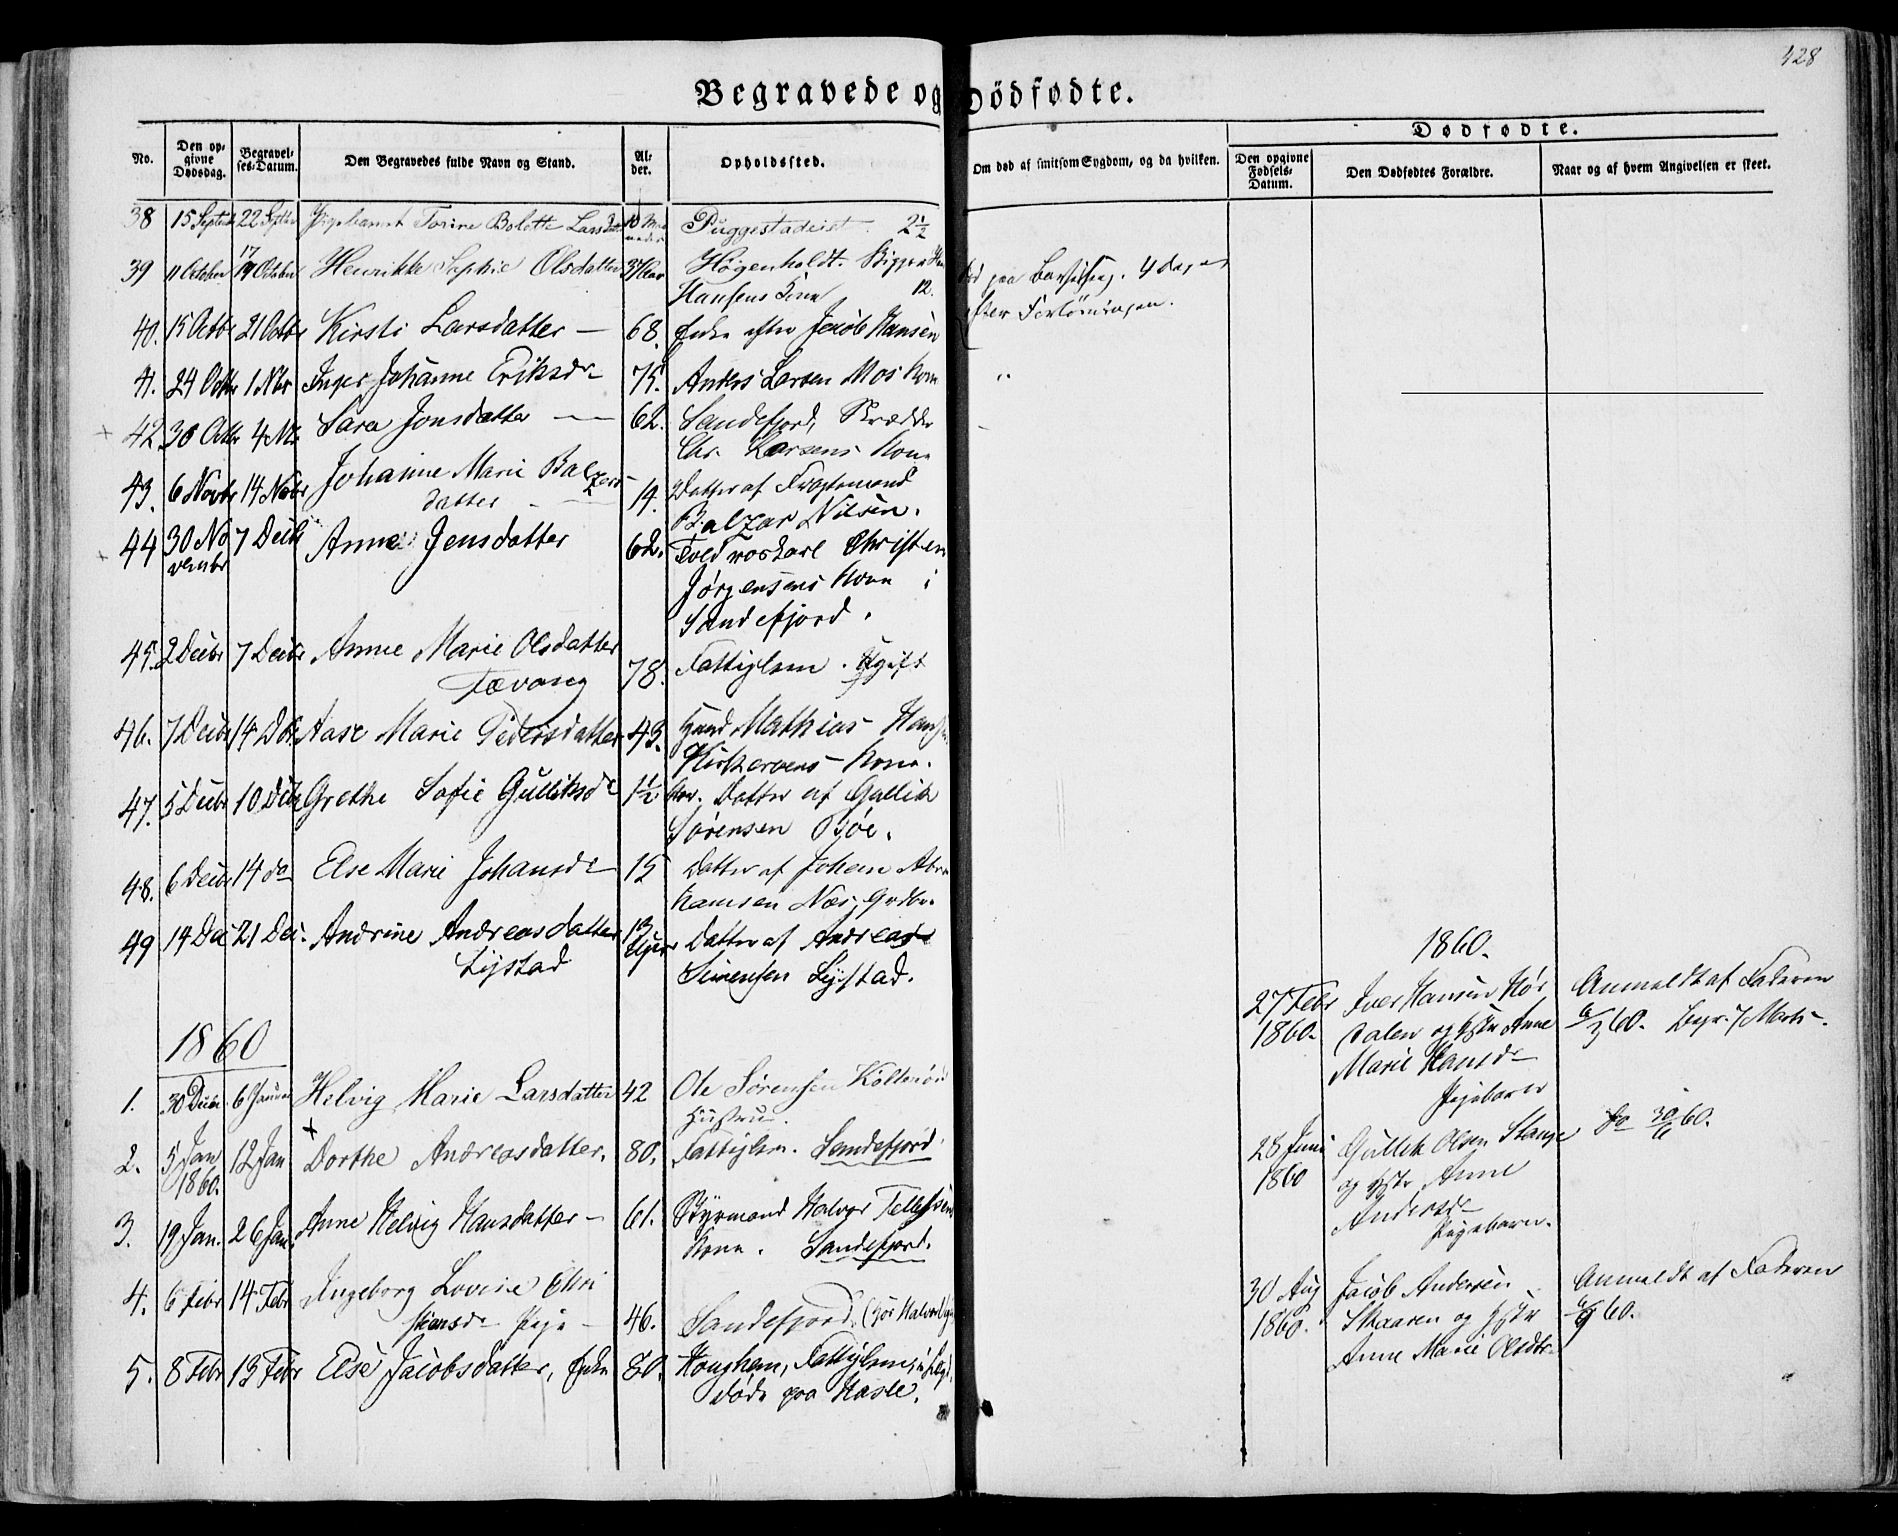 428
Begravede og Dødfødte.
Dødfødte.
No.
Den opgivne Dødsdag.
Begravelses-Datum.
Den Begravedes fulde Navn og Stand.
Alder.
Opholdssted.
Om død af smitsom Sygdom, og da hvilken.
Den opgivne Fødsels-Datum.
Den Dødfødtes Forældre.
Naar og af hvem Angivelsen er skeet.
38 15 Septbr 22 Septbr Torine Bolette Larsdatter 10 Maaneder 2½
39 11 October 19 October Henrikke Sophie Olsdatter 37 Aar Høgenholdt. Skipper
Hansens Kone 12. 4 dage
efter
40. 15 Octbr 21 Octbr Kirsti Larsdatter — 68. Enke efter Jacob Hansen
41. 24 Octbr 1 Nbr Inger Johanne Eriksdr 75. Anders Larsen Mos Kone
42. 30 Octbr 4 Nbr Sara Jonsdatter — 62. Sandefjord, Skrædder
Chr. Larsens Kone
43. 6 Novbr 14 Novbr Johanne Marie Balzers-
datter 19. Datter af Fragtemand
Balzar Nilsen.
44 30 November 7 Decbr Anne Jensdatter 62. Christen
Jørgensens Kone i
Sandefjord.
45. 2 Decbr 7 Decbr Anne Marie Olsdatter
78. Fattiglem. Ugift
46. 7 Decbr 14 Dbr Aase Marie Pedersdatter 43. Gmd Mathias Hansen
Kone.
47. 5 Decbr 10 Decbr Grethe Sofie Gulliksdr 1½ Aar. Datter af Gullik
Sørensen Bøe.
48. 6 Decbr 14 do Else Marie Johansdr 15 Datter af Johan Abra
hamsen Næs, Grdbr.
49 14 Dec 21 Dec. Andrine Andreasdatter 13 Uger Datter af Andreas
Lystad Simensen Lystad.
1860
1. 30 Decbr. 6 Januar Helvig Marie Larsdatter 42 Ole Sørensen
Hustru.
2. 5 Jan 1860. 12 Jan Dorthe Andreasdatter. 80. Fattiglem. Sandefjord.
3. 19 Jan. 26 Jan. Anne Helvig Hansdatter — 61. Styrmand Halvor Tellefsens
Kone. Sandefjord.
4. 6 Febr 14 Febr Ingeborg Lovise Chri
stiansdr Pige — 46. Sandefjord.
5. 8 Febr 13 Febr Else Jacobsdatter, Enke 80. Haughem, Fattiglem, i Lægd,
døde paa Hasle.
1860.
27 Febr 1860. Iver Hansen Mør
dalen og Hstr Anne
Marie Hansdr
Pigebarn
Anmeldt af Faderen
6/3 60. Begr. 7 Marts.
28 Juni 1860 Gullik Olsen Stange
og Hstr Anne
Andersdr
Pigebarn.
do 30/6 60.
30 Aug 1860. Jacob Andersen
Skaaren og Hstr
Anne Marie Olsdtr.
Anmeldt af Faderen
6/9 60.